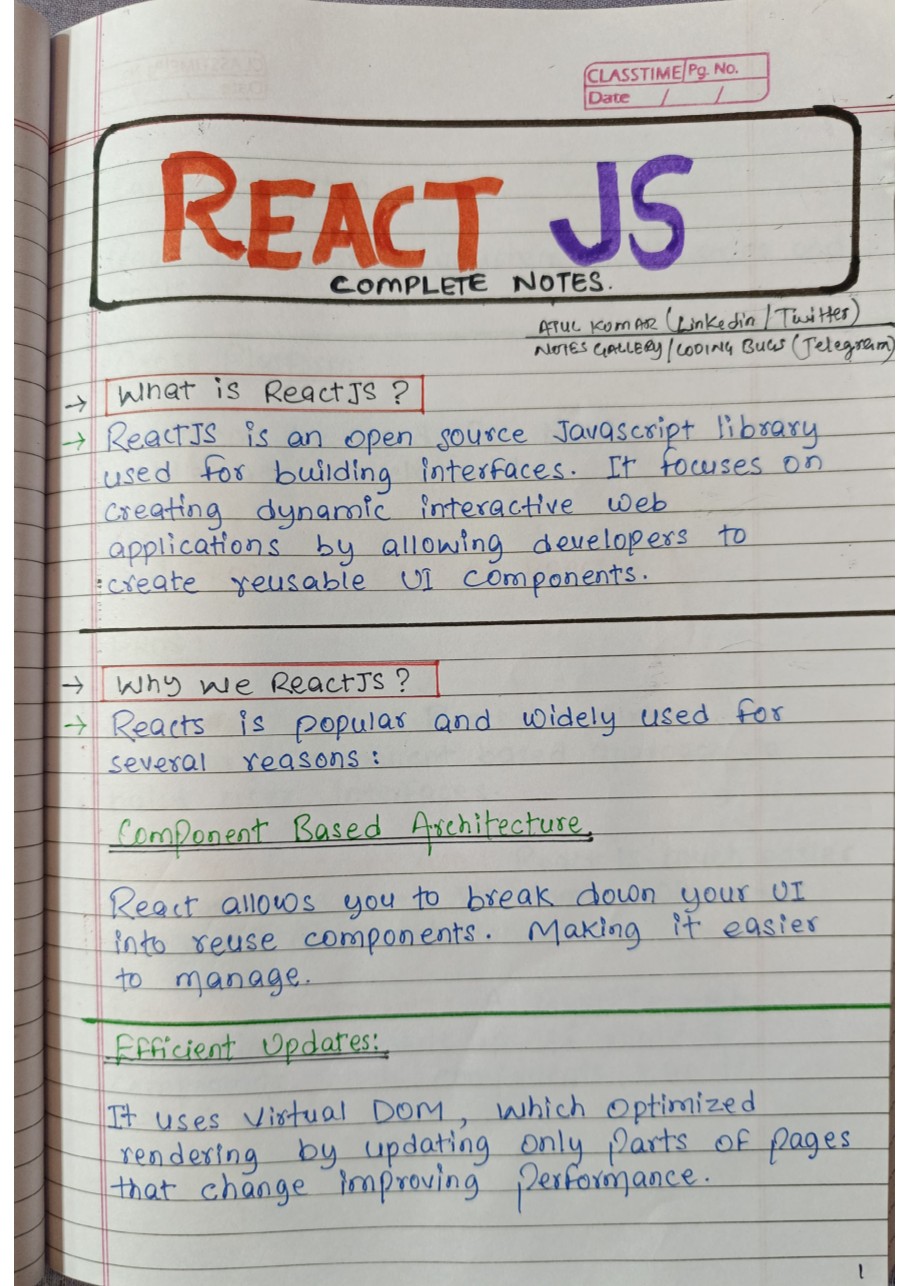 CLASSTIME Pg. No.
Date / /
REACT JS
COMPLETE NOTES.
ATUL KUMAR (Linkedin / Twitter)
NOTES GALLERY / CODING BUGS (Telegram)
→ What is ReactJS ?
→ ReactJS is an open source Javascript library
used for building interfaces. It focuses on
creating dynamic interactive web
applications by allowing developers to
create reusable UI components.
→ Why we ReactJS ?
→ Reacts is popular and widely used for
several reasons :
Component Based Architecture
React allows you to break down your UI
into reuse components. Making it easier
to manage.
Efficient Updates:
It uses Virtual DOM, which optimized
rendering by updating only parts of pages
that change improving performance.
1